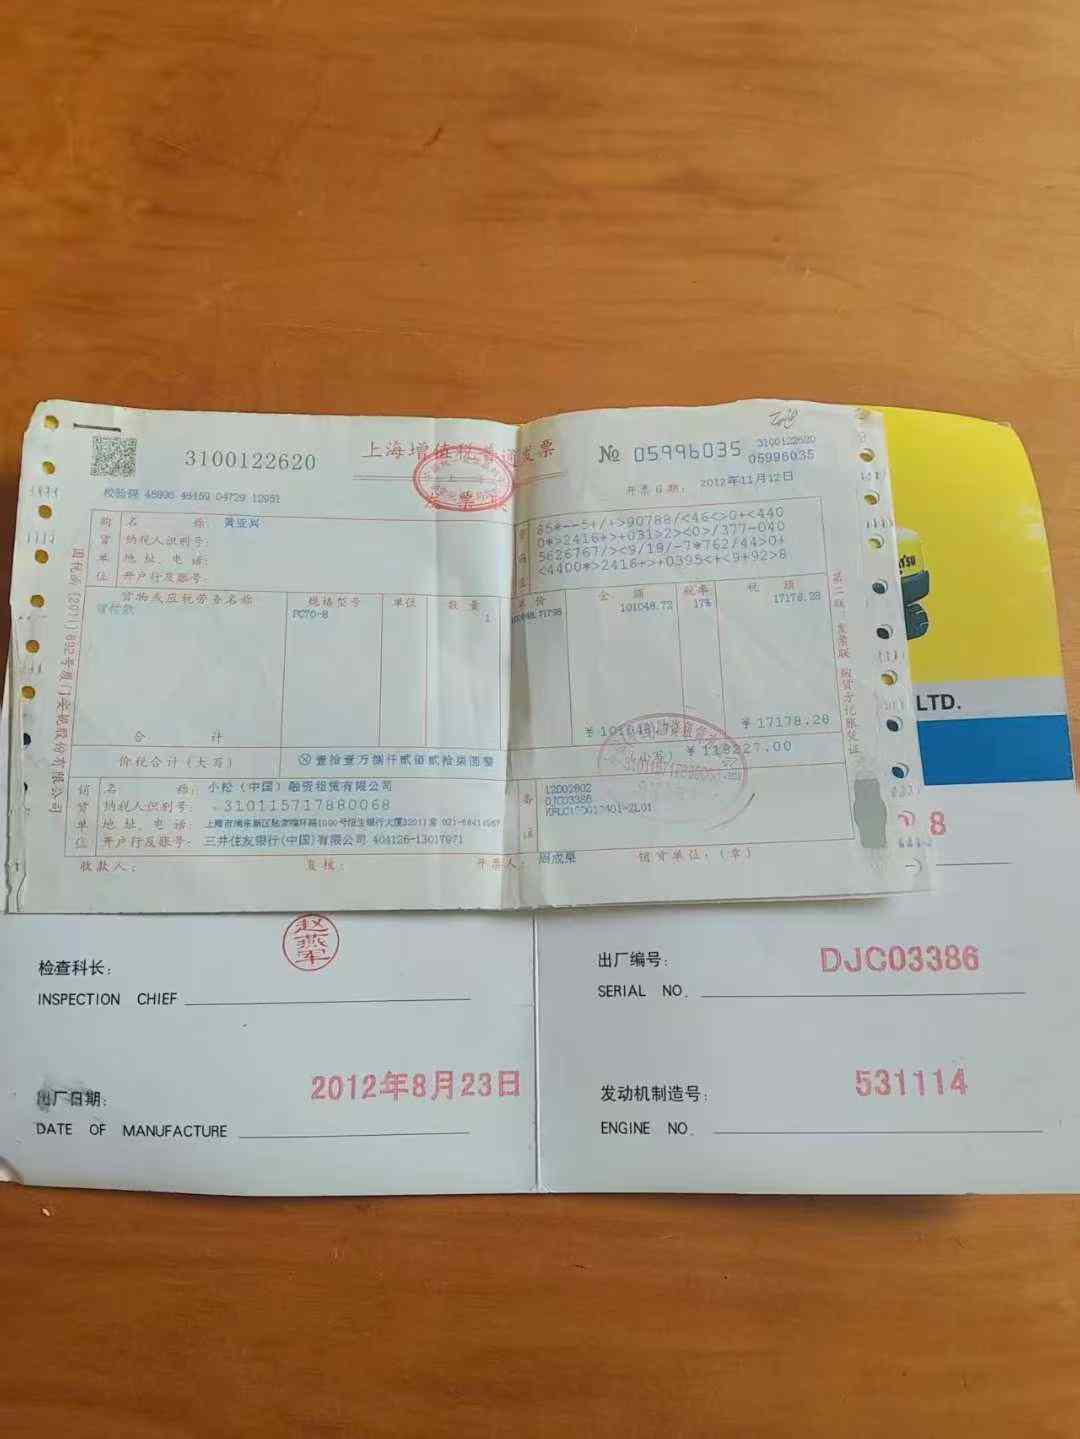 3100122620
上海增值税普通发票
发票联
№ 05996035
3100122620
05996035
开票日期: 2012年11月12日
校验码 04729 12951
购货单位
名 称: 黄亚兴
纳税人识别号:
地 址、电 话:
开户行及账号:
85*--5+/+>90788/<46<>0+<440
0*>2416+>+031>2><0>/377-040
5626767/><9/19/-7*762/44>0+
<4400*>2416+>+0395<+<9+92>8
货物或应税劳务名称
规格型号
单位
数 量
单 价
金 额
税率
税 额
首付款
PC70-8
1
101048.72
17%
17178.28
合 计
¥17178.28
价税合计(大写)
ⓧ壹拾壹万捌仟贰佰贰拾柒圆整
(小写) ¥118227.00
销货单位
名 称: 小松(中国)融资租赁有限公司
纳税人识别号: 310115717880068
地 址、电 话:
开户行及账号: 三井住友银行(中国)有限公司 404126-13017971
备注
12D02802
DJC03386
收款人:
复核:
开票人: 周成荣
销货单位:(章)
第二联:发票联 购货方记账凭证
LTD.
8
赵燕军
检查科长:
INSPECTION CHIEF
出厂编号:
DJC03386
SERIAL NO.
出厂日期:
2012年8月23日
DATE OF MANUFACTURE
发动机制造号:
531114
ENGINE NO.